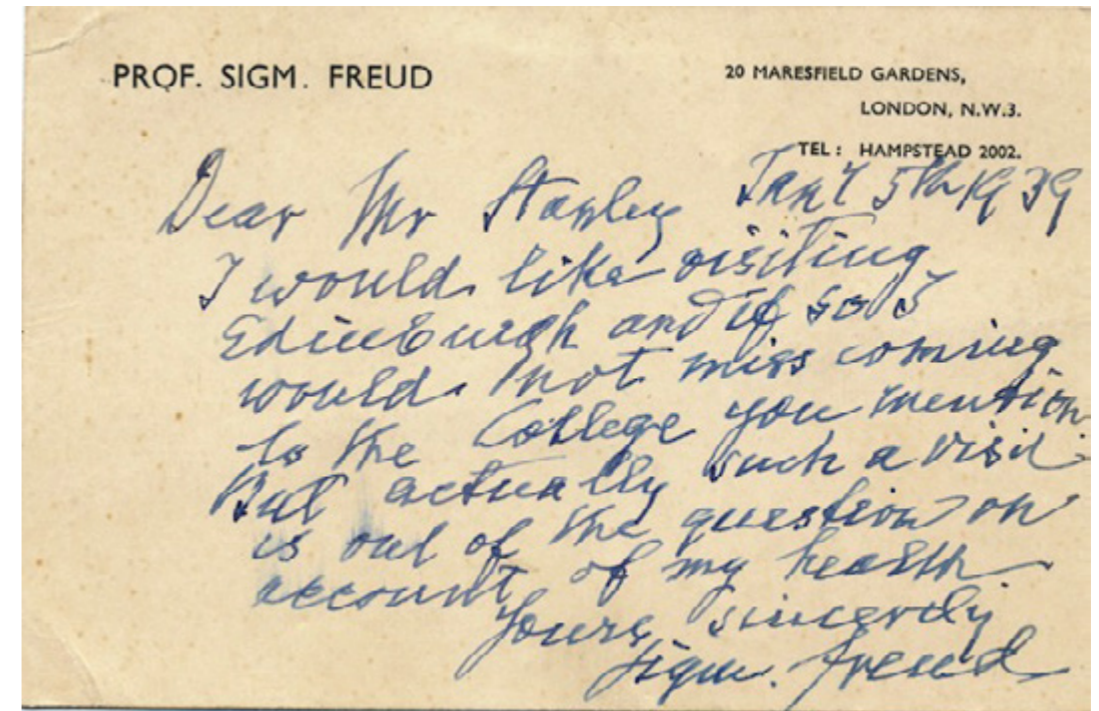 PROF. SIGM. FREUD
20 MARESFIELD GARDENS,
LONDON, N.W.3.
TEL : HAMPSTEAD 2002.
5th 1939
Dear Mr Stanley
I would like visiting
Edinburgh and if so I
would not miss coming
to the College you mention
But actually such a visit
is out of the question on
account of my health
Yours sincerely
Sigm. Freud